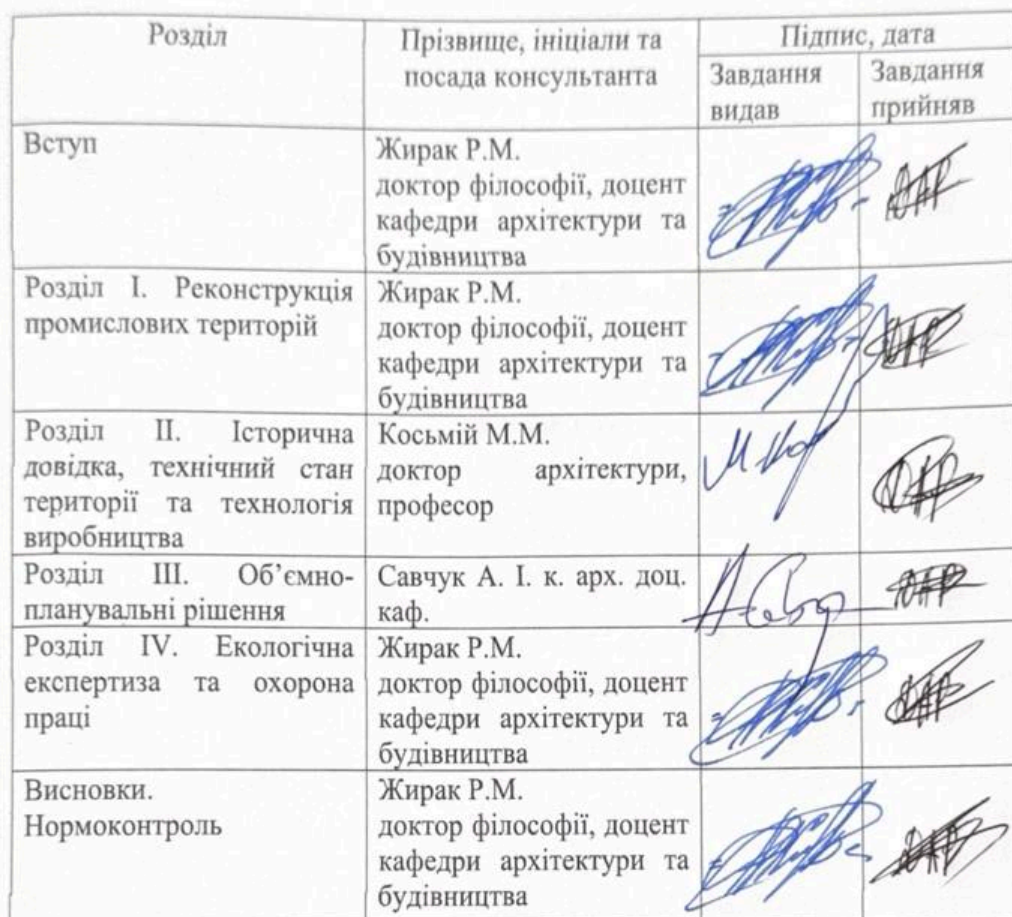 Розділ
Прізвище, ініціали та
посада консультанта
Підпис, дата
Завдання
видав
Завдання
прийняв
Вступ
Жирак Р.М.
доктор філософії, доцент
кафедри архітектури та
будівництва
Розділ І. Реконструкція
промислових територій
Жирак Р.М.
доктор філософії, доцент
кафедри архітектури та
будівництва
Розділ ІІ. Історична
довідка, технічний стан
території та технологія
виробництва
Косьмій М.М.
доктор архітектури,
професор
Розділ ІІІ. Об’ємно-
планувальні рішення
Савчук А. І. к. арх. доц.
каф.
Розділ IV. Екологічна
експертиза та охорона
праці
Жирак Р.М.
доктор філософії, доцент
кафедри архітектури та
будівництва
Висновки.
Нормоконтроль
Жирак Р.М.
доктор філософії, доцент
кафедри архітектури та
будівництва